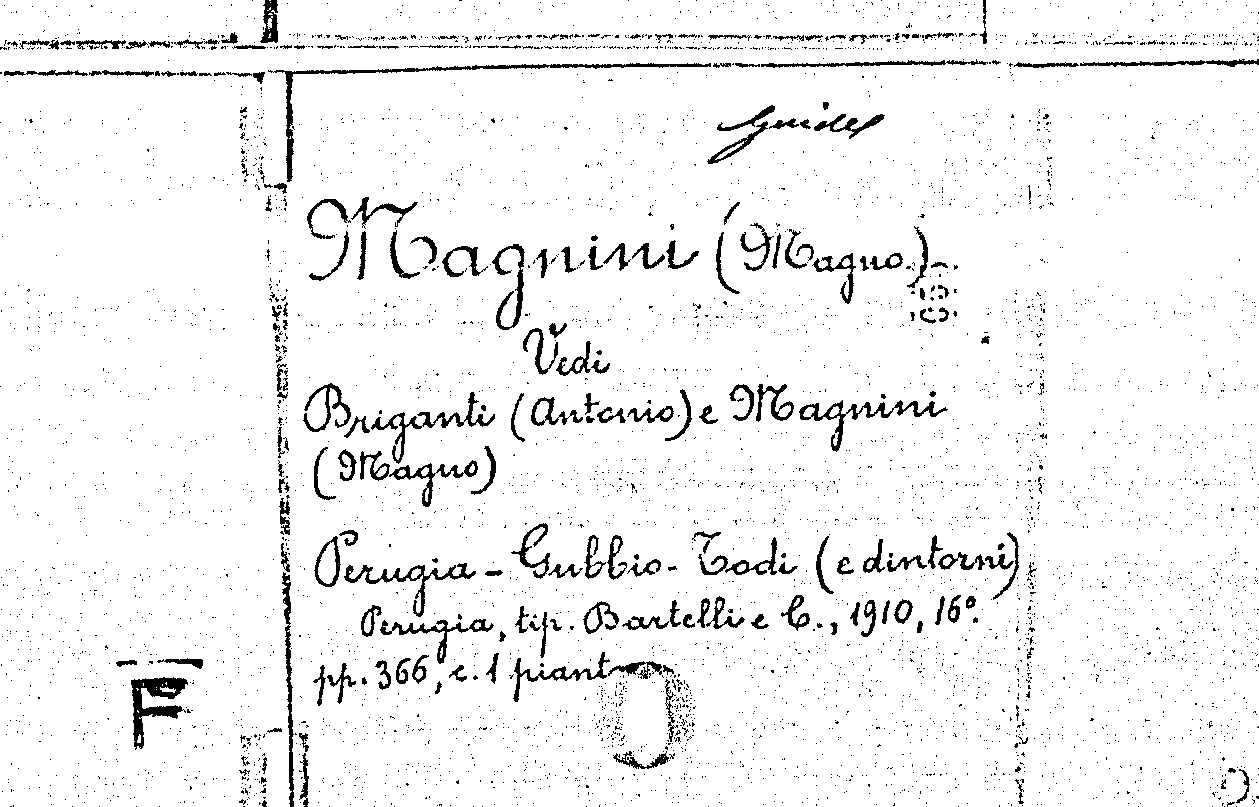 Guide
Magnini (Magno)
Vedi
Briganti (Antonio) e Magnini
(Magno)
Perugia - Gubbio - Todi (e dintorni)
Perugia, tip. Bartelli e C., 1910, 16°.
pp. 366, c. 1 piant
F